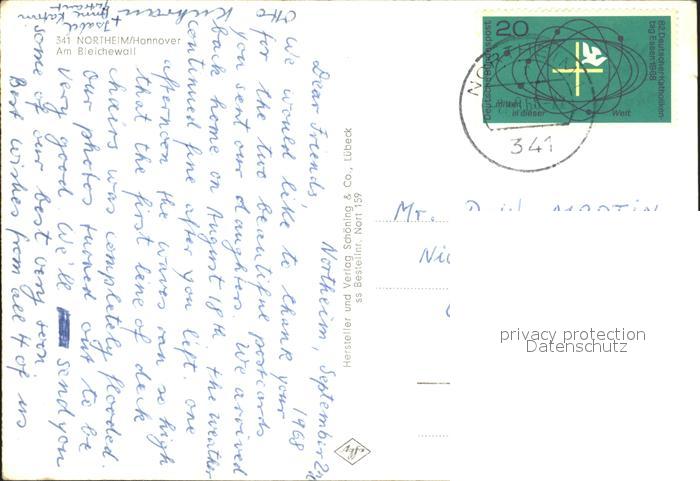 341 NORTHEIM/Hannover
Am Bleichewall
Northeim, September 2nd
1968
Dear Friends
We would like to thank you
for the two beautiful postcards
you sent our daughter. We arrived
back home on August 18th the weather
continued fine after you left. one
afternoon the waves ran so high
that the first line of deck
chairs was completely flooded.
Our photos turned out to be
very good. We'll send you
some of our best very soon.
Best wishes from all 4 of us
Hersteller und Verlag Schöning & Co., Lübeck
ss Bestellnr. Nort 159
20
Deutsche Bundespost
82 Deutscher Katholiken-
tag Essen 1968
mitten
in dieser Welt
NOR
341
Mr. D.W. MARTIN
privacy protection
Datenschutz